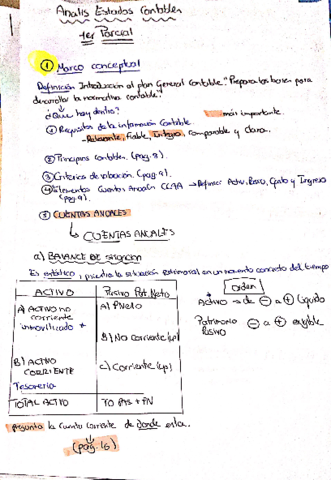 Analis Estados Contables
1er Parcial
① Marco conceptual
Definición Introducción al plan General Contable. "Prepara las bases para
desarrollar la normativa contable."
¿Qué hay dentro?
más importante.
① Requisitos de la información Contable.
- Relevante, Fiable, Íntegra, Comparable y Clara.
② Principios contables. (pag. 8).
③ Criterios de valoración. (pag. 9).
④ Elementos Cuentas Anuales CCAA → Definir Activ, Pasivo, Gasto y Ingreso
(pag 9).
⑤ CUENTAS ANUALES
↳ CUENTAS ANUALES
a) BALANCE DE SITUACIÓN
Es estático, la situación patrimonial en un momento concreto del tiempo
ACTIVO Pasivo Pat. Neto
A) ACTIVO no corriente inmovilizado +
A) PNeto
B) No corriente (lp)
B) ACTIVO CORRIENTE
C) Corriente (cp)
Tesorería
TOTAL ACTIVO TO PAS + PN
Orden
Activo → de ⊖ a ⊕ líquido
Patrimonio Pasivo ⊖ a ⊕ exigible
Pregunta la cuenta corriente de donde esta..
(pág. 16)